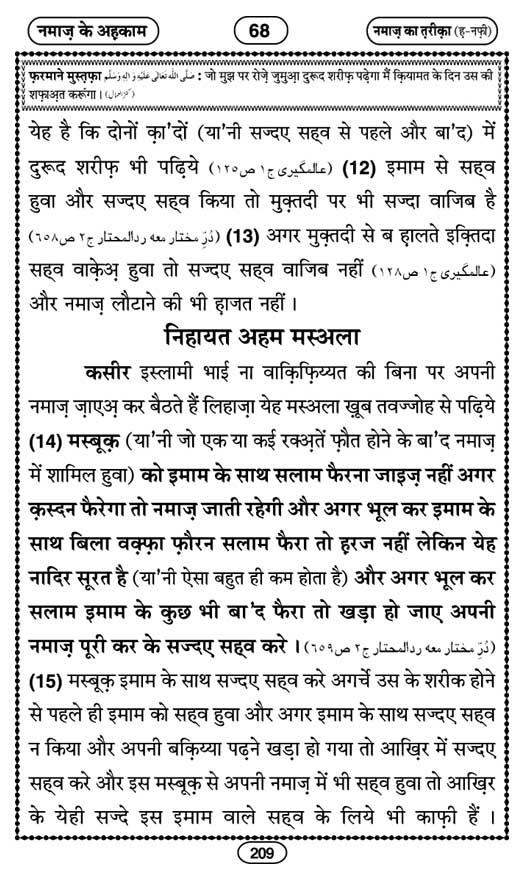 नमाज़ के अहकाम
68
नमाज़ का तरीक़ा (ह-नफ़ी)
फ़रमाने मुस्तफ़ा صَلَّى اللهُ تَعَالٰى عَلَيْهِ وَاٰلِهٖ وَسَلَّم : जो मुझ पर रोज़े जुमुआ दुरूद शरीफ़ पढ़ेगा मैं क़ियामत के दिन उस की
शफ़ाअत करूंगा। (کنزالعمال)
येह है कि दोनों क़ा'दों (या'नी सज्दए सह्व से पहले और बा'द) में
दुरूद शरीफ़ भी पढ़िये (عالمگیری ج١ ص١٢٥) (12) इमाम से सह्व
हुवा और सज्दए सह्व किया तो मुक़्तदी पर भी सज्दा वाजिब है
(دُرِّ مختار معه ردالمحتار ج٢ ص٦٥٨) (13) अगर मुक़्तदी से ब हालते इक़्तिदा
सह्व वाक़ेअ़ हुवा तो सज्दए सह्व वाजिब नहीं (عالمگیری ج١ ص١٢٨)
और नमाज़ लौटाने की भी हाजत नहीं ।
निहायत अहम मस्अला
कसीर इस्लामी भाई ना वाक़िफ़िय्यत की बिना पर अपनी
नमाज़ ज़ाएअ़ कर बैठते हैं लिहाज़ा येह मस्अला ख़ूब तवज्जोह से पढ़िये
(14) मस्बूक़ (या'नी जो एक या कई रक्अ़तें फ़ौत होने के बा'द नमाज़
में शामिल हुवा) को इमाम के साथ सलाम फैरना जाइज़ नहीं अगर
क़स्दन फैरेगा तो नमाज़ जाती रहेगी और अगर भूल कर इमाम के
साथ बिला वक़्फ़ा फ़ौरन सलाम फैरा तो हरज नहीं लेकिन येह
नादिर सूरत है (या'नी ऐसा बहुत ही कम होता है) और अगर भूल कर
सलाम इमाम के कुछ भी बा'द फैरा तो खड़ा हो जाए अपनी
नमाज़ पूरी कर के सज्दए सह्व करे । (دُرِّ مختار معه ردالمحتار ج٢ ص٦٥٩)
(15) मस्बूक़ इमाम के साथ सज्दए सह्व करे अगर्चे उस के शरीक होने
से पहले ही इमाम को सह्व हुवा और अगर इमाम के साथ सज्दए सह्व
न किया और अपनी बक़िय्या पढ़ने खड़ा हो गया तो आख़िर में सज्दए
सह्व करे और इस मस्बूक़ से अपनी नमाज़ में भी सह्व हुवा तो आख़िर
के येही सज्दे इस इमाम वाले सह्व के लिये भी काफ़ी हैं ।
209